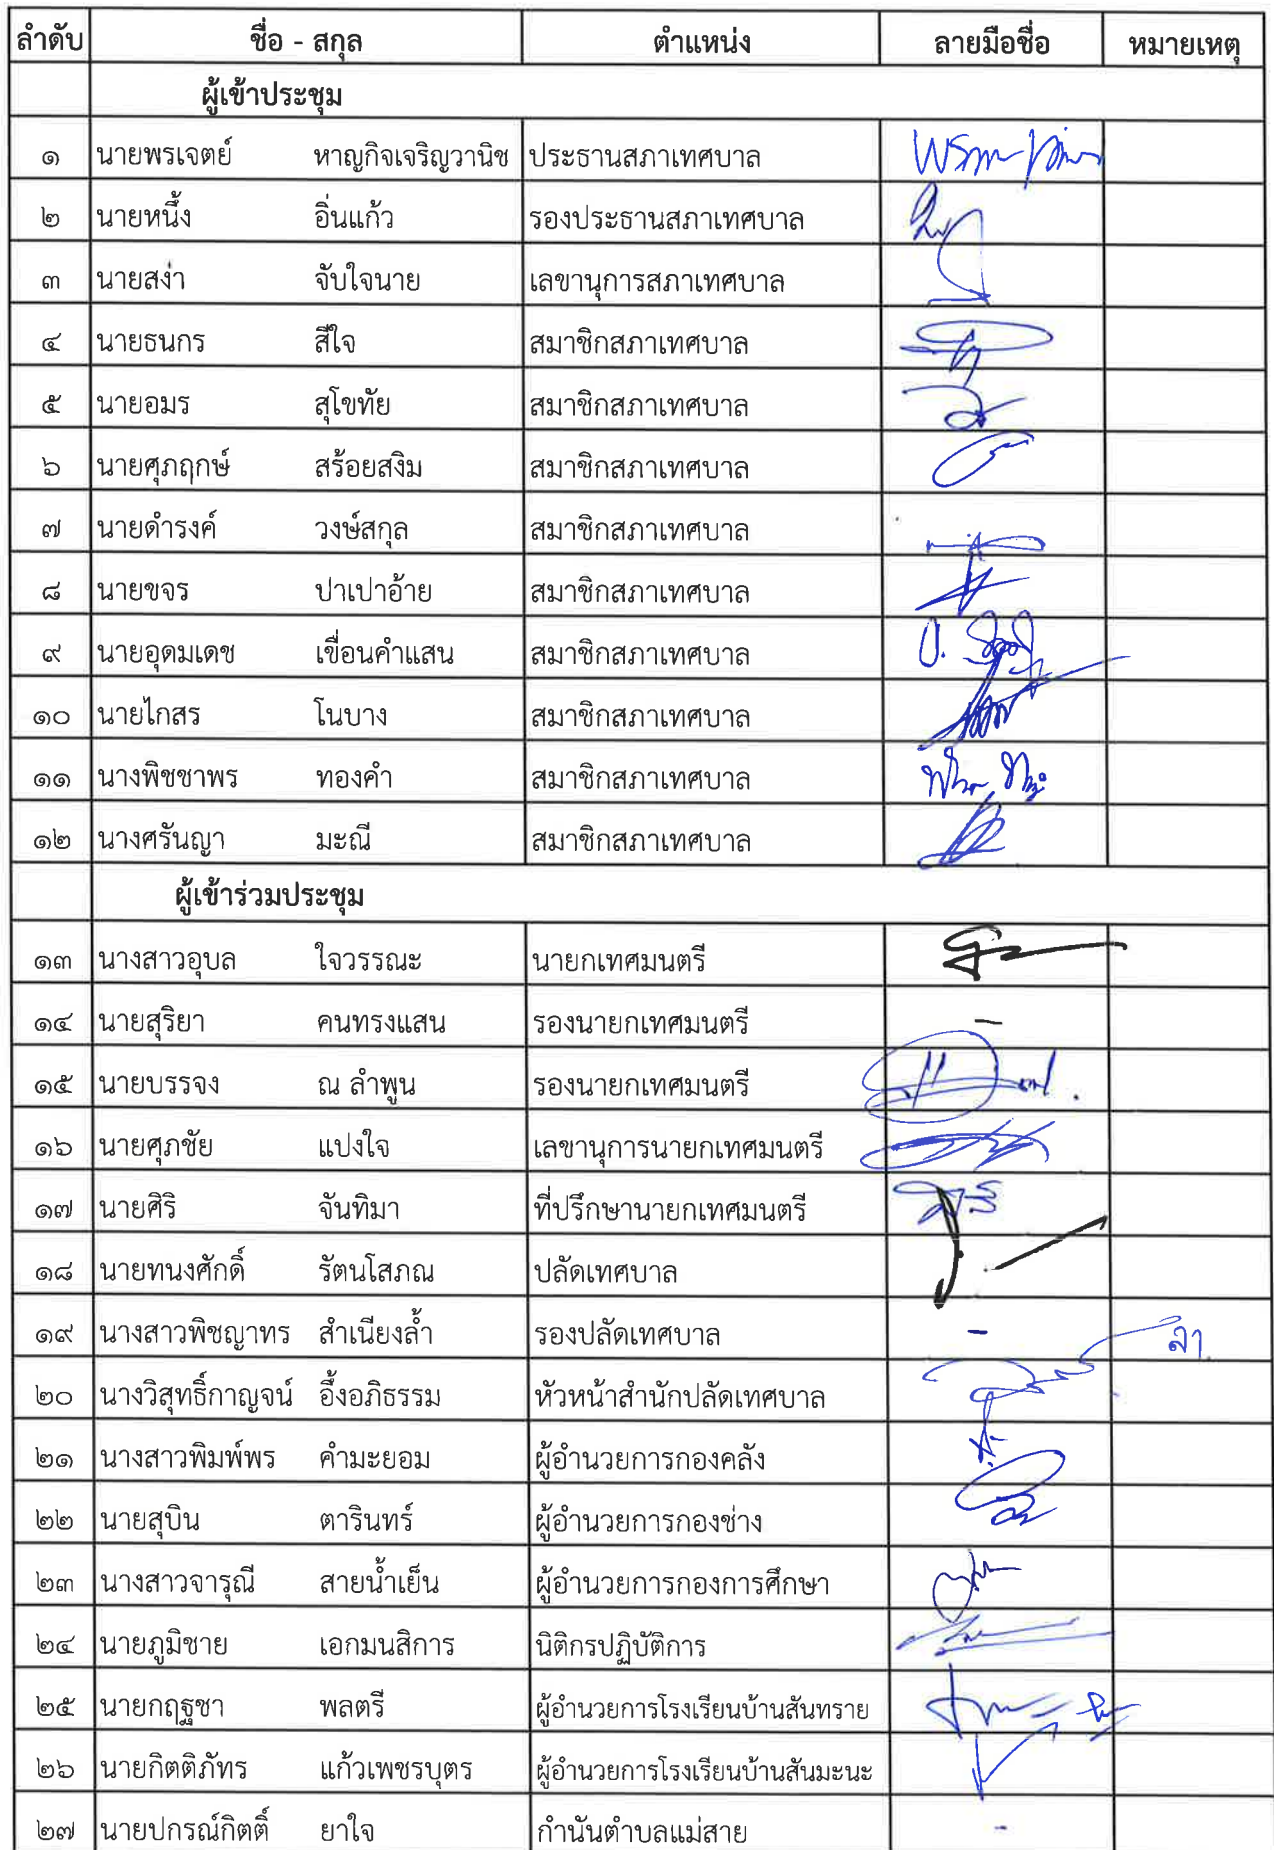 ลำดับ ชื่อ - สกุล ตำแหน่ง ลายมือชื่อ หมายเหตุ
ผู้เข้าประชุม
๑ นายพรเจตย์ หาญกิจเจริญวานิช ประธานสภาเทศบาล
๒ นายหนึ้ง อิ่นแก้ว รองประธานสภาเทศบาล
๓ นายสง่า จับใจนาย เลขานุการสภาเทศบาล
๔ นายธนกร สีใจ สมาชิกสภาเทศบาล
๕ นายอมร สุโขทัย สมาชิกสภาเทศบาล
๖ นายศุภฤกษ์ สร้อยสงิม สมาชิกสภาเทศบาล
๗ นายดำรงค์ วงษ์สกุล สมาชิกสภาเทศบาล
๘ นายขจร ปาเปาอ้าย สมาชิกสภาเทศบาล
๙ นายอุดมเดช เขื่อนคำแสน สมาชิกสภาเทศบาล
๑๐ นายไกสร โนบาง สมาชิกสภาเทศบาล
๑๑ นางพิชชาพร ทองคำ สมาชิกสภาเทศบาล
๑๒ นางศรันญา มะณี สมาชิกสภาเทศบาล
ผู้เข้าร่วมประชุม
๑๓ นางสาวอุบล ใจวรรณะ นายกเทศมนตรี
๑๔ นายสุริยา คนทรงแสน รองนายกเทศมนตรี -
๑๕ นายบรรจง ณ ลำพูน รองนายกเทศมนตรี
๑๖ นายศุภชัย แปงใจ เลขานุการนายกเทศมนตรี
๑๗ นายศิริ จันทิมา ที่ปรึกษานายกเทศมนตรี
๑๘ นายทนงศักดิ์ รัตนโสภณ ปลัดเทศบาล
๑๙ นางสาวพิชญาทร สำเนียงล้ำ รองปลัดเทศบาล - ลา
๒๐ นางวิสุทธิ์กาญจน์ อึ้งอภิธรรม หัวหน้าสำนักปลัดเทศบาล
๒๑ นางสาวพิมพ์พร คำมะยอม ผู้อำนวยการกองคลัง
๒๒ นายสุบิน ตารินทร์ ผู้อำนวยการกองช่าง
๒๓ นางสาวจารุณี สายน้ำเย็น ผู้อำนวยการกองการศึกษา
๒๔ นายภูมิชาย เอกมนสิการ นิติกรปฏิบัติการ
๒๕ นายกฤฐชา พลตรี ผู้อำนวยการโรงเรียนบ้านสันทราย
๒๖ นายกิตติภัทร แก้วเพชรบุตร ผู้อำนวยการโรงเรียนบ้านสันมะนะ
๒๗ นายปกรณ์กิตติ์ ยาใจ กำนันตำบลแม่สาย -